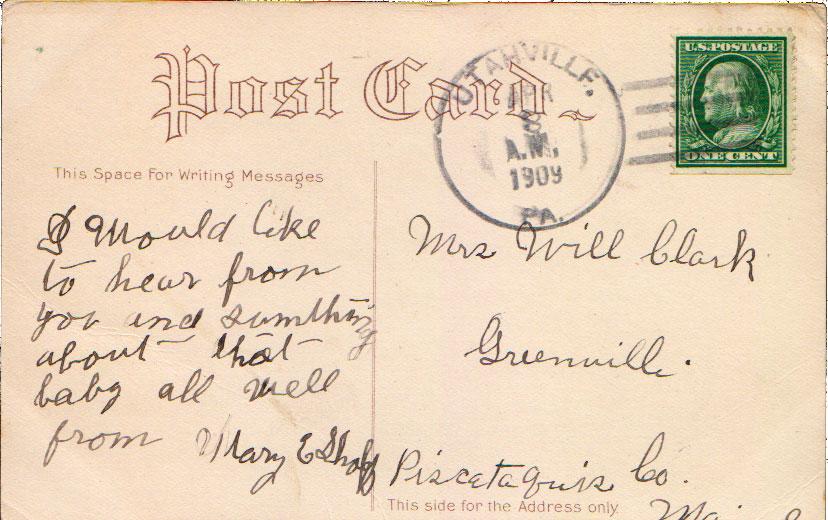 Post Card
UTAHVILLE,
APR
8
A.M.
1909
PA.
U.S. POSTAGE
ONE CENT
This Space For Writing Messages
I Would like
to hear from
you and sumthing
about that
baby all well
from Mary E Shoff
Mrs Will Clark
Greenville.
Piscataquis Co.
This side for the Address only.